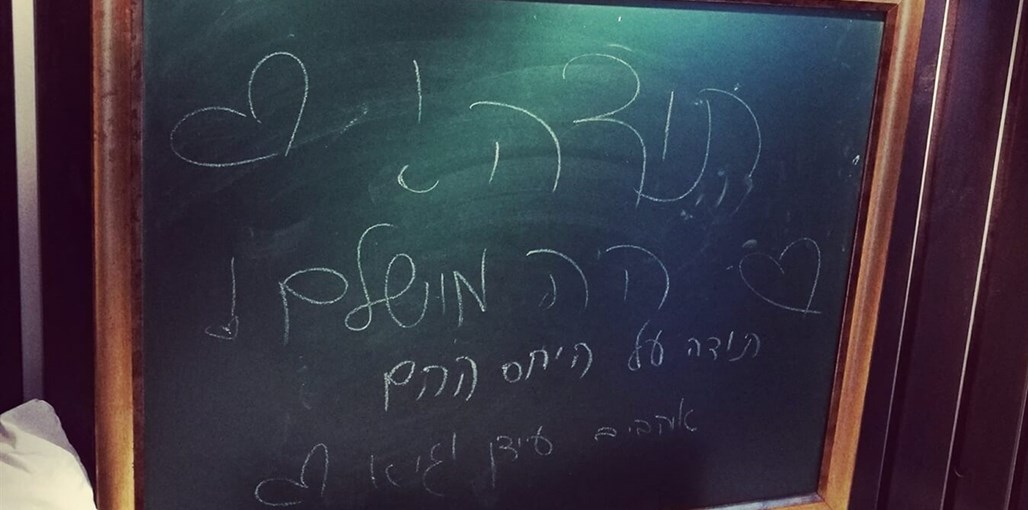 תודה!
היה מושלם!
תודה על היחס החם
אוהבים עידן וגיא